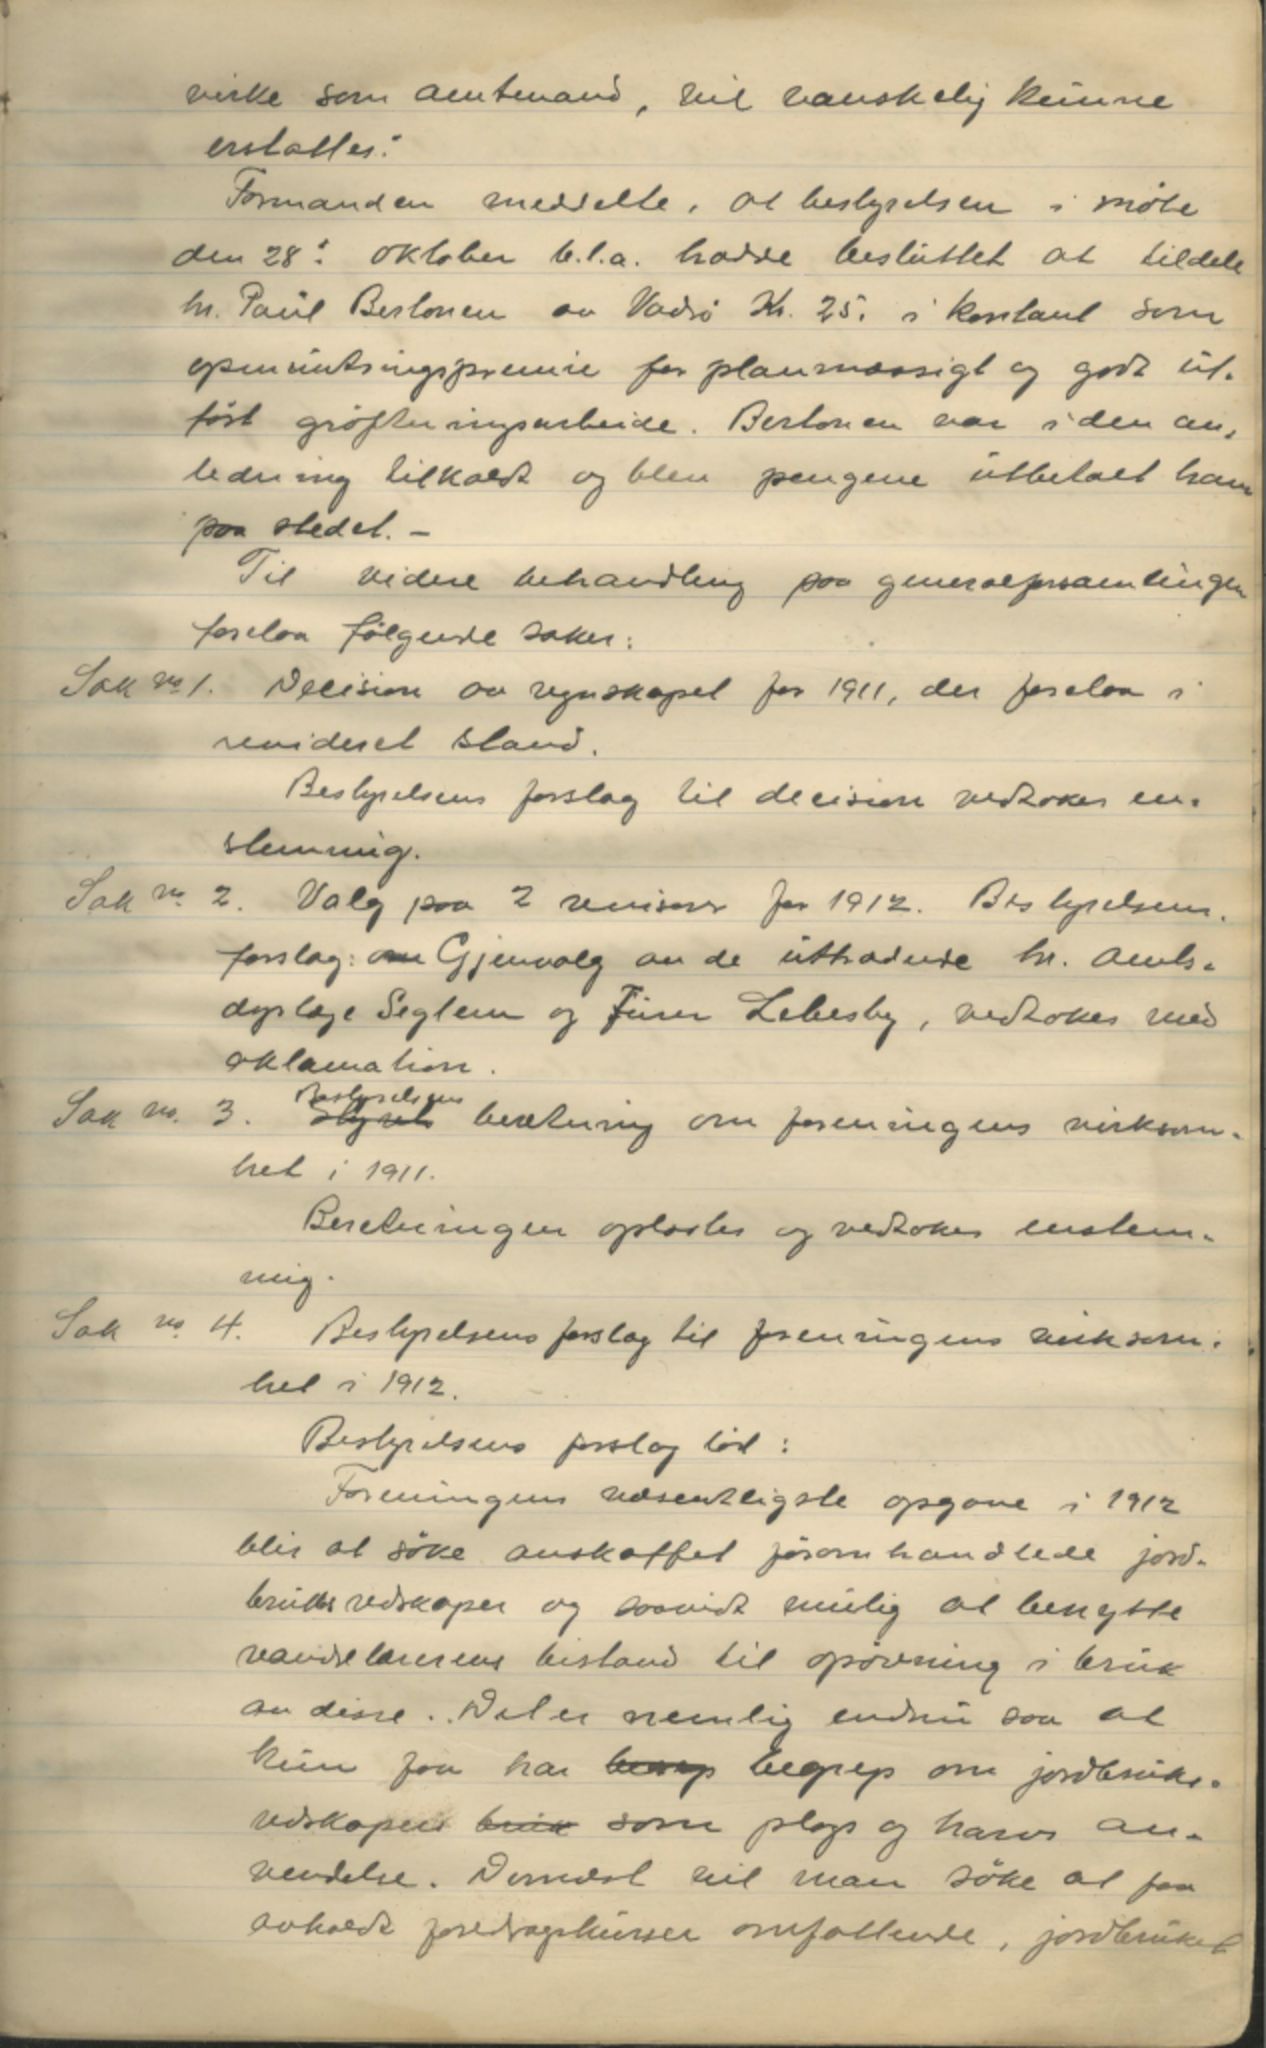 virke som amtmand, vil vanskelig kunne
erstattes.
Formanden meddelte, at bestyrelsen i møte
den 28. oktober b.l.a. hadde besluttet at tildele
hr. Paul Bertonen av Vadsö Kr. 25. i kontant som
opmuntringspremie for planmæssigt og godt ut-
ført grøfteringsarbeide. Bertonen var i den an-
ledning tilkaldt og blev pengene utbetalt ham
paa stedet. –
Til videre behandling paa generalforsamlingen
forelaa følgende saker:
Sak no. 1. Decision av regnskapet for 1911, der forelaa i
revideret stand.
Bestyrelsens forslag til decision vedtokes en-
stemmig.
Sak no. 2. Valg paa 2 revisorer for 1912. Bestyrelsens
forslag: om Gjenvalg av de uttrædende hr. amts-
dyrlæge Seglem og Furer Lebesby, vedtokes med
aklamation.
Sak no. 3. Bestyrelsens
Styrets beretning om foreningens virksom-
het i 1911.
Beretningen oplæstes og vedtokes enstem-
mig.
Sak no. 4. Bestyrelsens forslag til foreningens virksom-
het i 1912.
Bestyrelsens forslag lød:
Foreningens væsentligste opgave i 1912
blir at søke anskaffet føromhandlede jord-
bruksredskaper og saavidt mulig at benytte
vandrelærerens bistand til opøvning i bruk
av disse. Det er nemlig endnu saa at
kun faa har begrep om jordbruks-
redskapers bruk som plogs og harvs an-
vendelse. Dernæst vil man søke at faa
avholdt foredragskurser omfattende, jordbruket